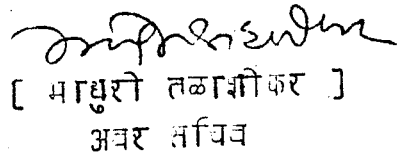 [ माधुरी तळाशीकर ]
अवर सचिव